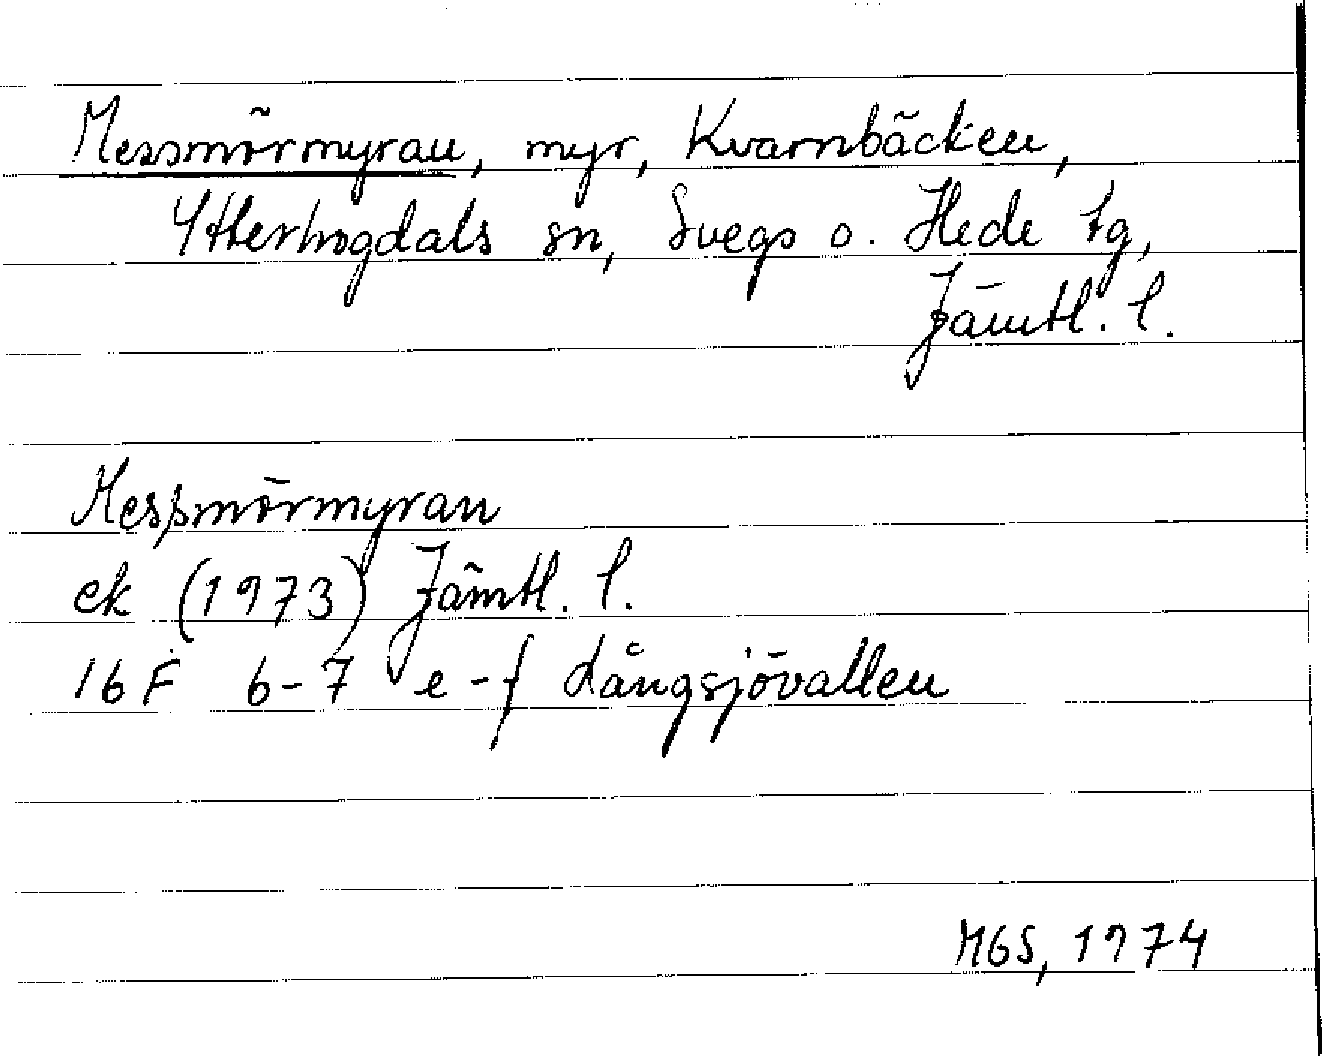 Messmörmyran, myr, Kvarnbäcken,
Ytterhogdals sn, Svegs o. Hede tg,
Jämtl. l.
Messmörmyran
ek (1973) Jämtl. l.
16 F 6-7 e-f Långsjövallen
MGS, 1974